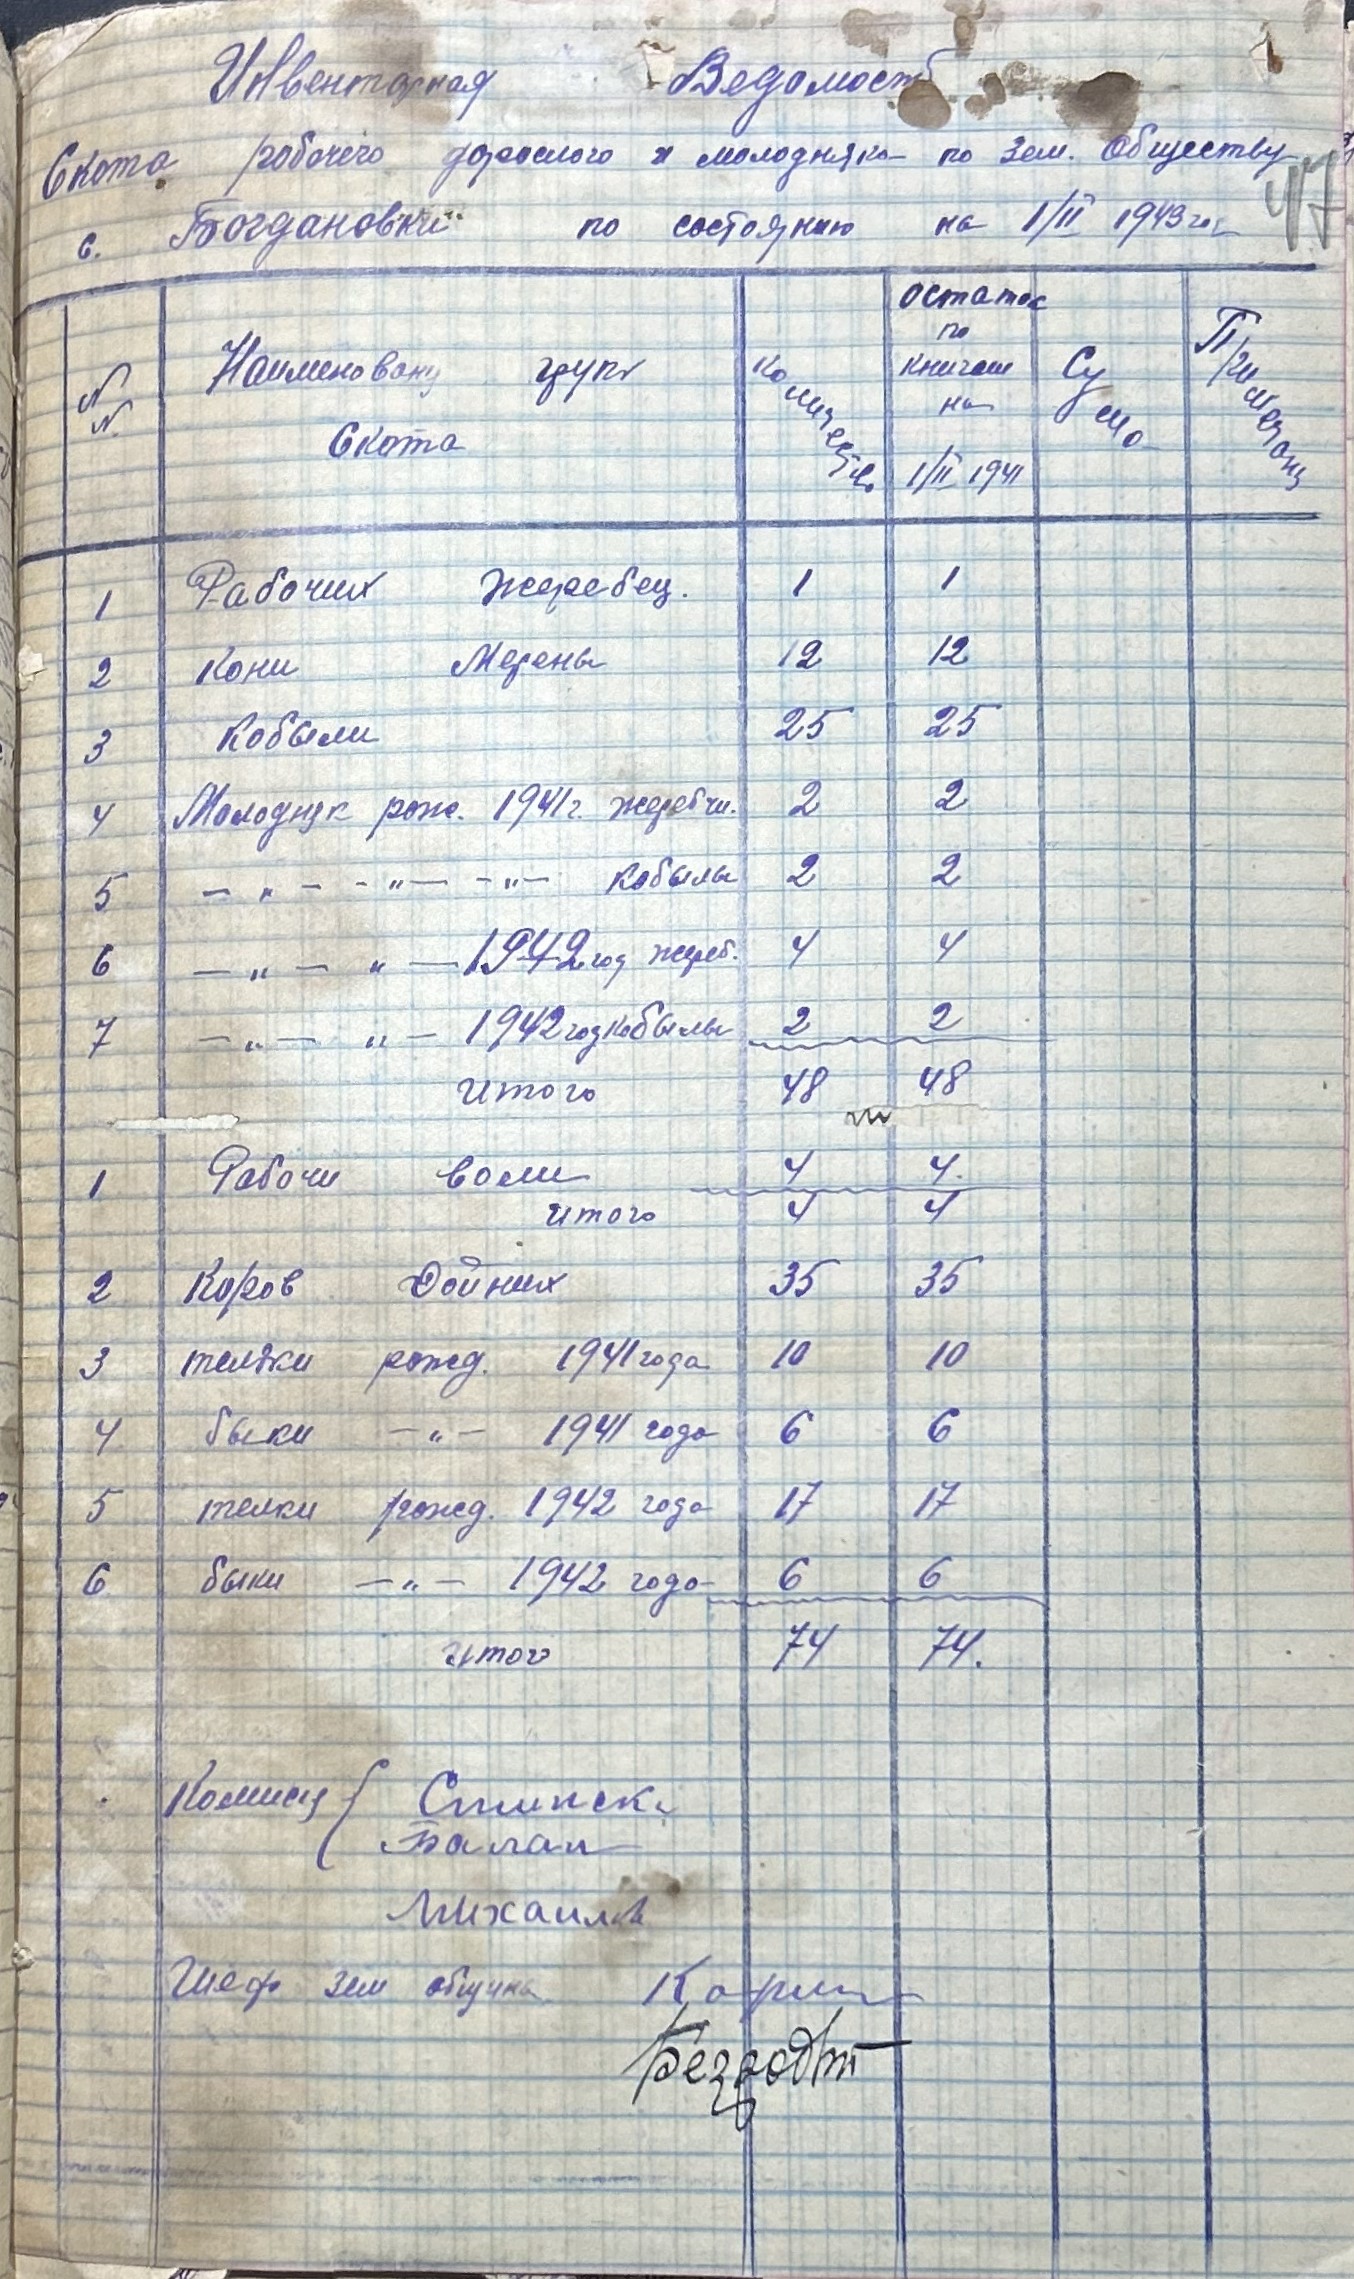 Инвентарная Ведомость
47
Скота робочего дорослого и молодняка по зем. Обществу
с. Богдановки по состоянию на 1/II 1943 год
№ № Наименовани груп Скота Количество остаток по книгам на 1/II 1941 Сума Примечани
1 Рабочих жеребец. 1 1
2 Кони Мерены 12 12
3 Кобыли 25 25
4 Молодняк рож. 1941 г. жеребчи. 2 2
5 — „ — - „ — - „ — кобылы 2 2
6 — „ — „ — 1942 год жереб. 4 4
7 — „ — „ — 1942 год кобылы 2 2
Итого 48 48
1 Рабочи воли 4 4.
итого 4 4
2 Коров Дойних 35 35
3 телки рожд. 1941 года 10 10
4 быки — „ — 1941 года 6 6
5 телки рожд. 1942 года 17 17
6 быки — „ — 1942 года 6 6
итого 74 74.
Комисия {
Балан
Михаилов
Шеф зем община